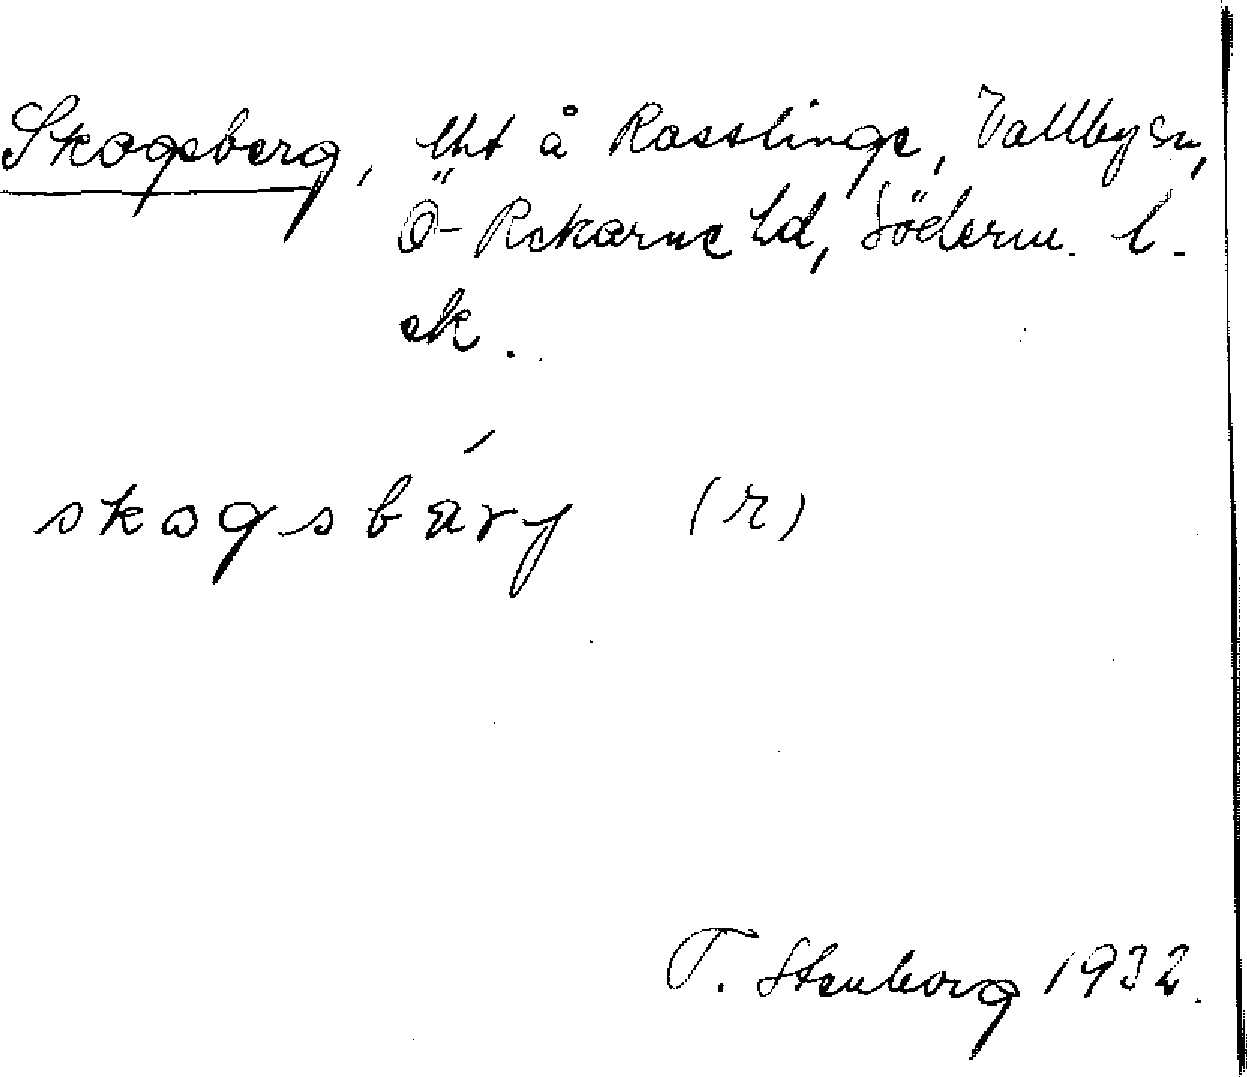 Skogsberg, lht å Rosslinge, Vallby sn,
Ö-Rekarne hd, Söderm. l.
sk.
skogsbärj (r)
T. Stenborg 1932.